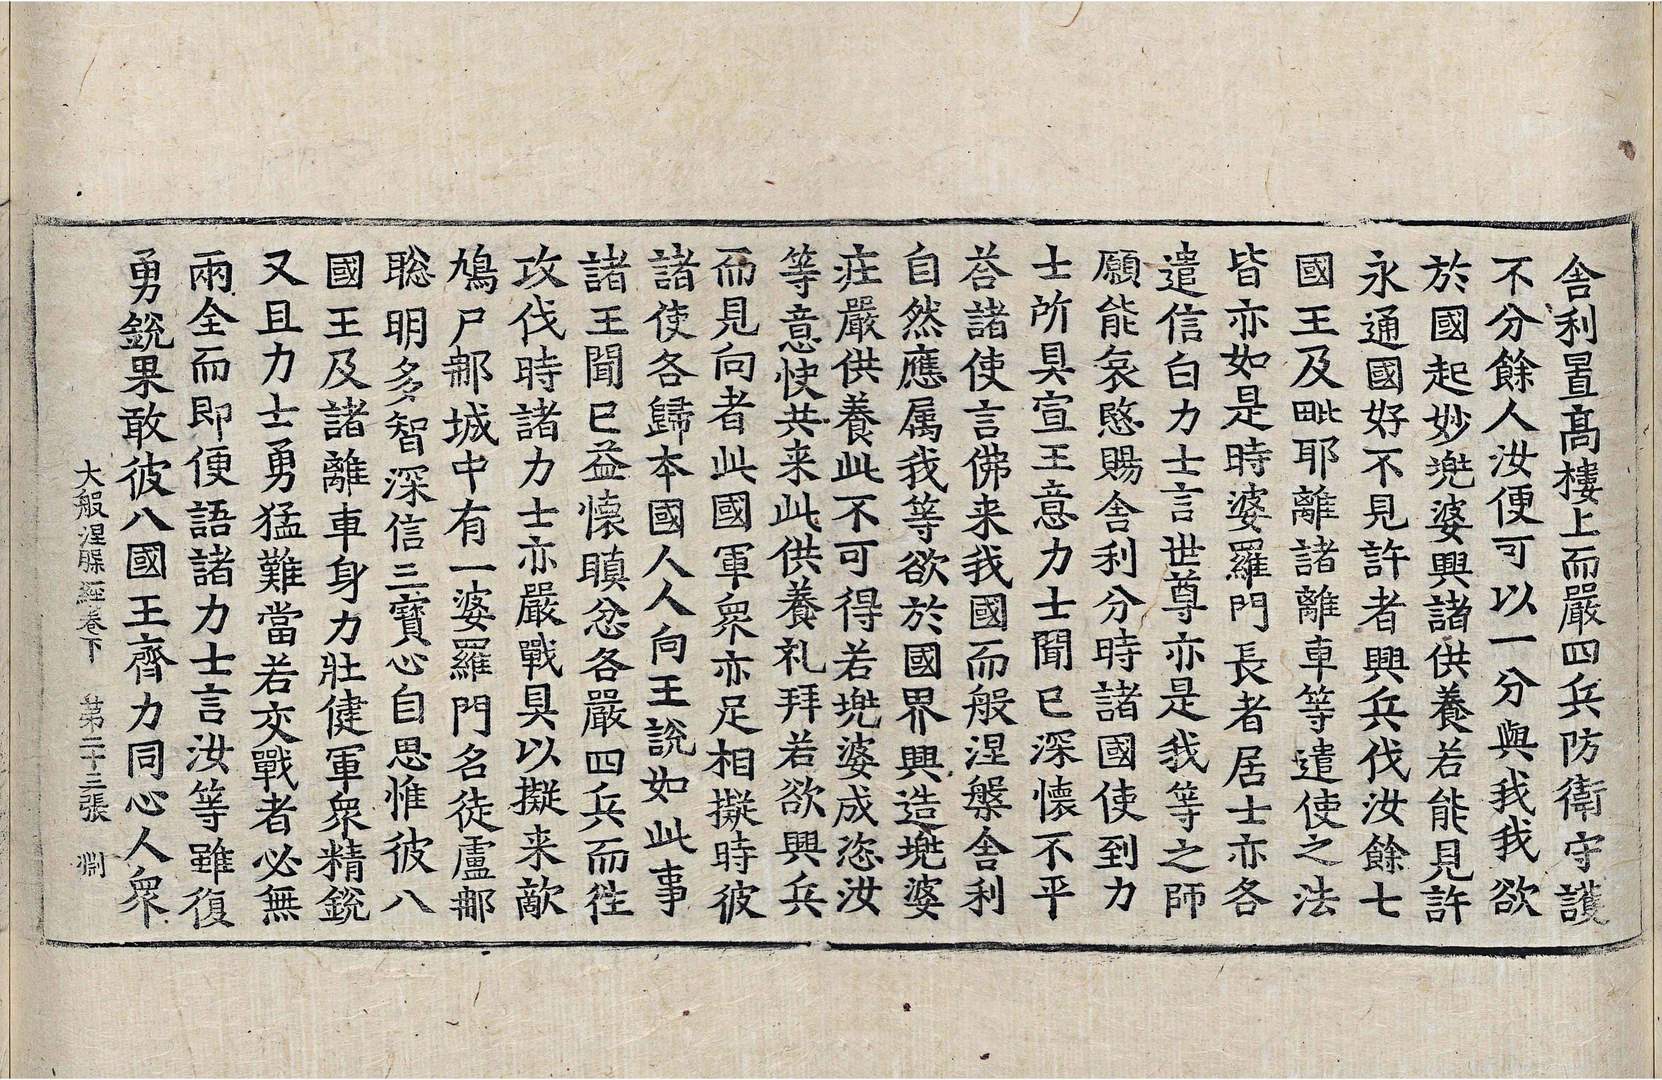 舎利置髙樓上而嚴四兵防衛守護
不分餘人汝便可以一分與我我欲
於國起妙兠婆興諸供養若能見許
永通國好不見許者興兵伐汝餘七
國王及毗耶離諸離車等遣使之法
皆亦如是時婆羅門長者居士亦各
遣信白力士言世尊亦是我等之師
願能哀愍賜舎利分時諸國使到力
士所具宣王意力士聞已深懷不平
荅諸使言佛来我國而般涅槃舎利
自然應属我等欲於國界興造兠婆
莊嚴供養此不可得若兠婆成恣汝
等意使共来此供養礼拜若欲興兵
而見向者此國軍衆亦足相擬時彼
諸使各歸本國人人向王說如此事
諸王聞已益懷瞋忿各嚴四兵而往
攻伐時諸力士亦嚴戰具以擬来敵
鳩尸那城中有一婆羅門名徒盧那
聡明多智深信三寶心自思惟彼八
國王及諸離車身力壯健軍衆精銳
又且力士勇猛難當若交戰者必無
兩全而即便語諸力士言汝等雖復
勇銳果敢彼八國王齊力同心人衆
大般涅槃經卷下 第二十三張 淵